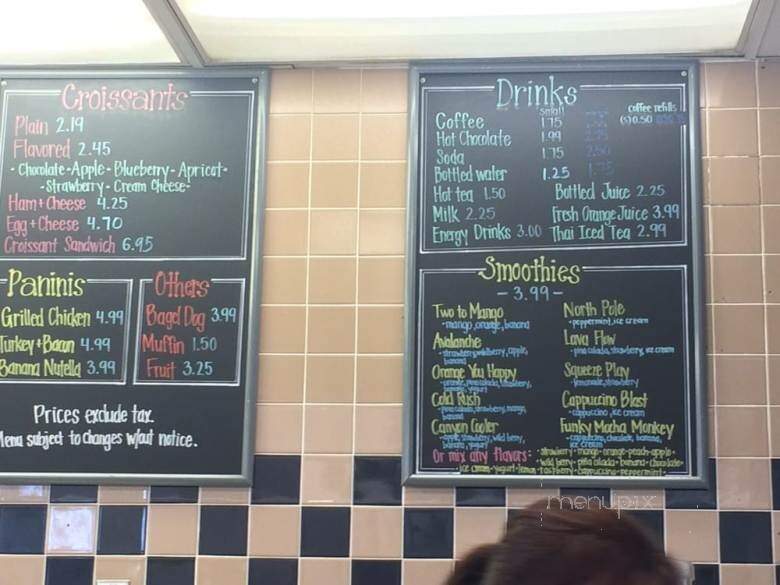 Croissants
Plain 2.19
Flavored 2.45
- Chocolate - Apple - Blueberry - Apricot -
- Strawberry - Cream Cheese -
Ham + Cheese 4.25
Egg + Cheese 4.70
Croissant Sandwich 6.95
Paninis
Grilled Chicken 4.99
Turkey + Bacon 4.99
Banana Nutella 3.99
Others
Bagel Dog 3.99
Muffin 1.50
Fruit 3.25
Prices exclude tax.
Menu subject to changes w/out notice.
Drinks
small
coffee refills
Coffee 1.75
(s) 0.50
Hot Chocolate 1.99
Soda 1.75
Bottled water 1.25
Hot tea 1.50
Bottled Juice 2.25
Milk 2.25
Fresh Orange Juice 3.99
Energy Drinks 3.00
Thai Iced Tea 2.99
Smoothies
- 3.99 -
Two to Mango
- mango, orange, banana
Avalanche
banana
Orange You Happy
Cold Rush
banana
Canyon Cooler
banana, yogurt
North Pole
- peppermint, ice cream
Lava Flow
- pina colada, strawberry, ice cream
Squeeze Play
- lemonade, strawberry
Cappuccino Blast
- cappuccino, ice cream
Funky Mocha Monkey
ice cream
Or mix any flavors: - strawberry - mango - orange - peach - apple -
- wild berry - piña colada - banana - chocolate -
- ice cream - yogurt - lemon - raspberry - cappuccino - peppermint -
menupix